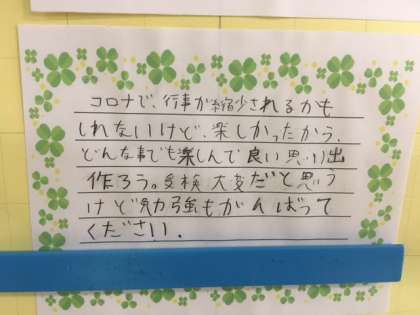 コロナで、行事が縮少されるかも
しれないけど、楽しかったから、
どんな事でも楽しんで良い思い出
作ろう。受検大変だと思う
けど勉強もがんばって
ください.